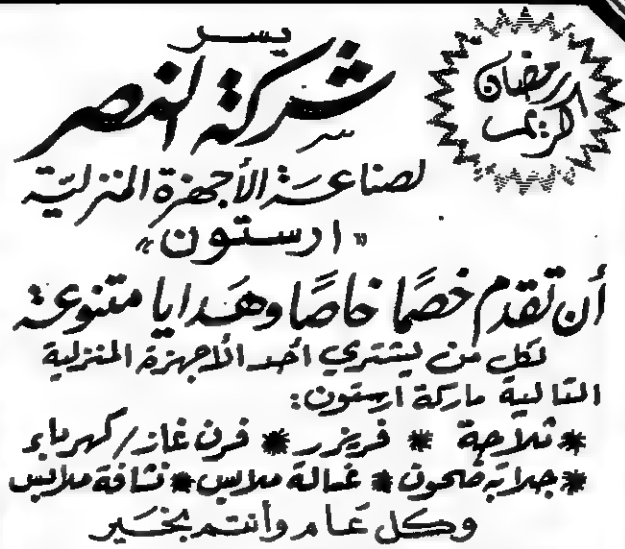 رمضان
كريم
يسر
شركة النصر
لصناعة الأجهزة المنزلية
"ارستون"
أن تقدم خصمًا خاصًا وهدايا متنوعة
لكل من يشتري أحد الأجهزة المنزلية
التالية ماركة ارستون:
* ثلاجة * فريزر * فرن غاز/كهرباء
* جلاية صحون * غسالة ملابس * نشافة ملابس
وكل عام وأنتم بخير